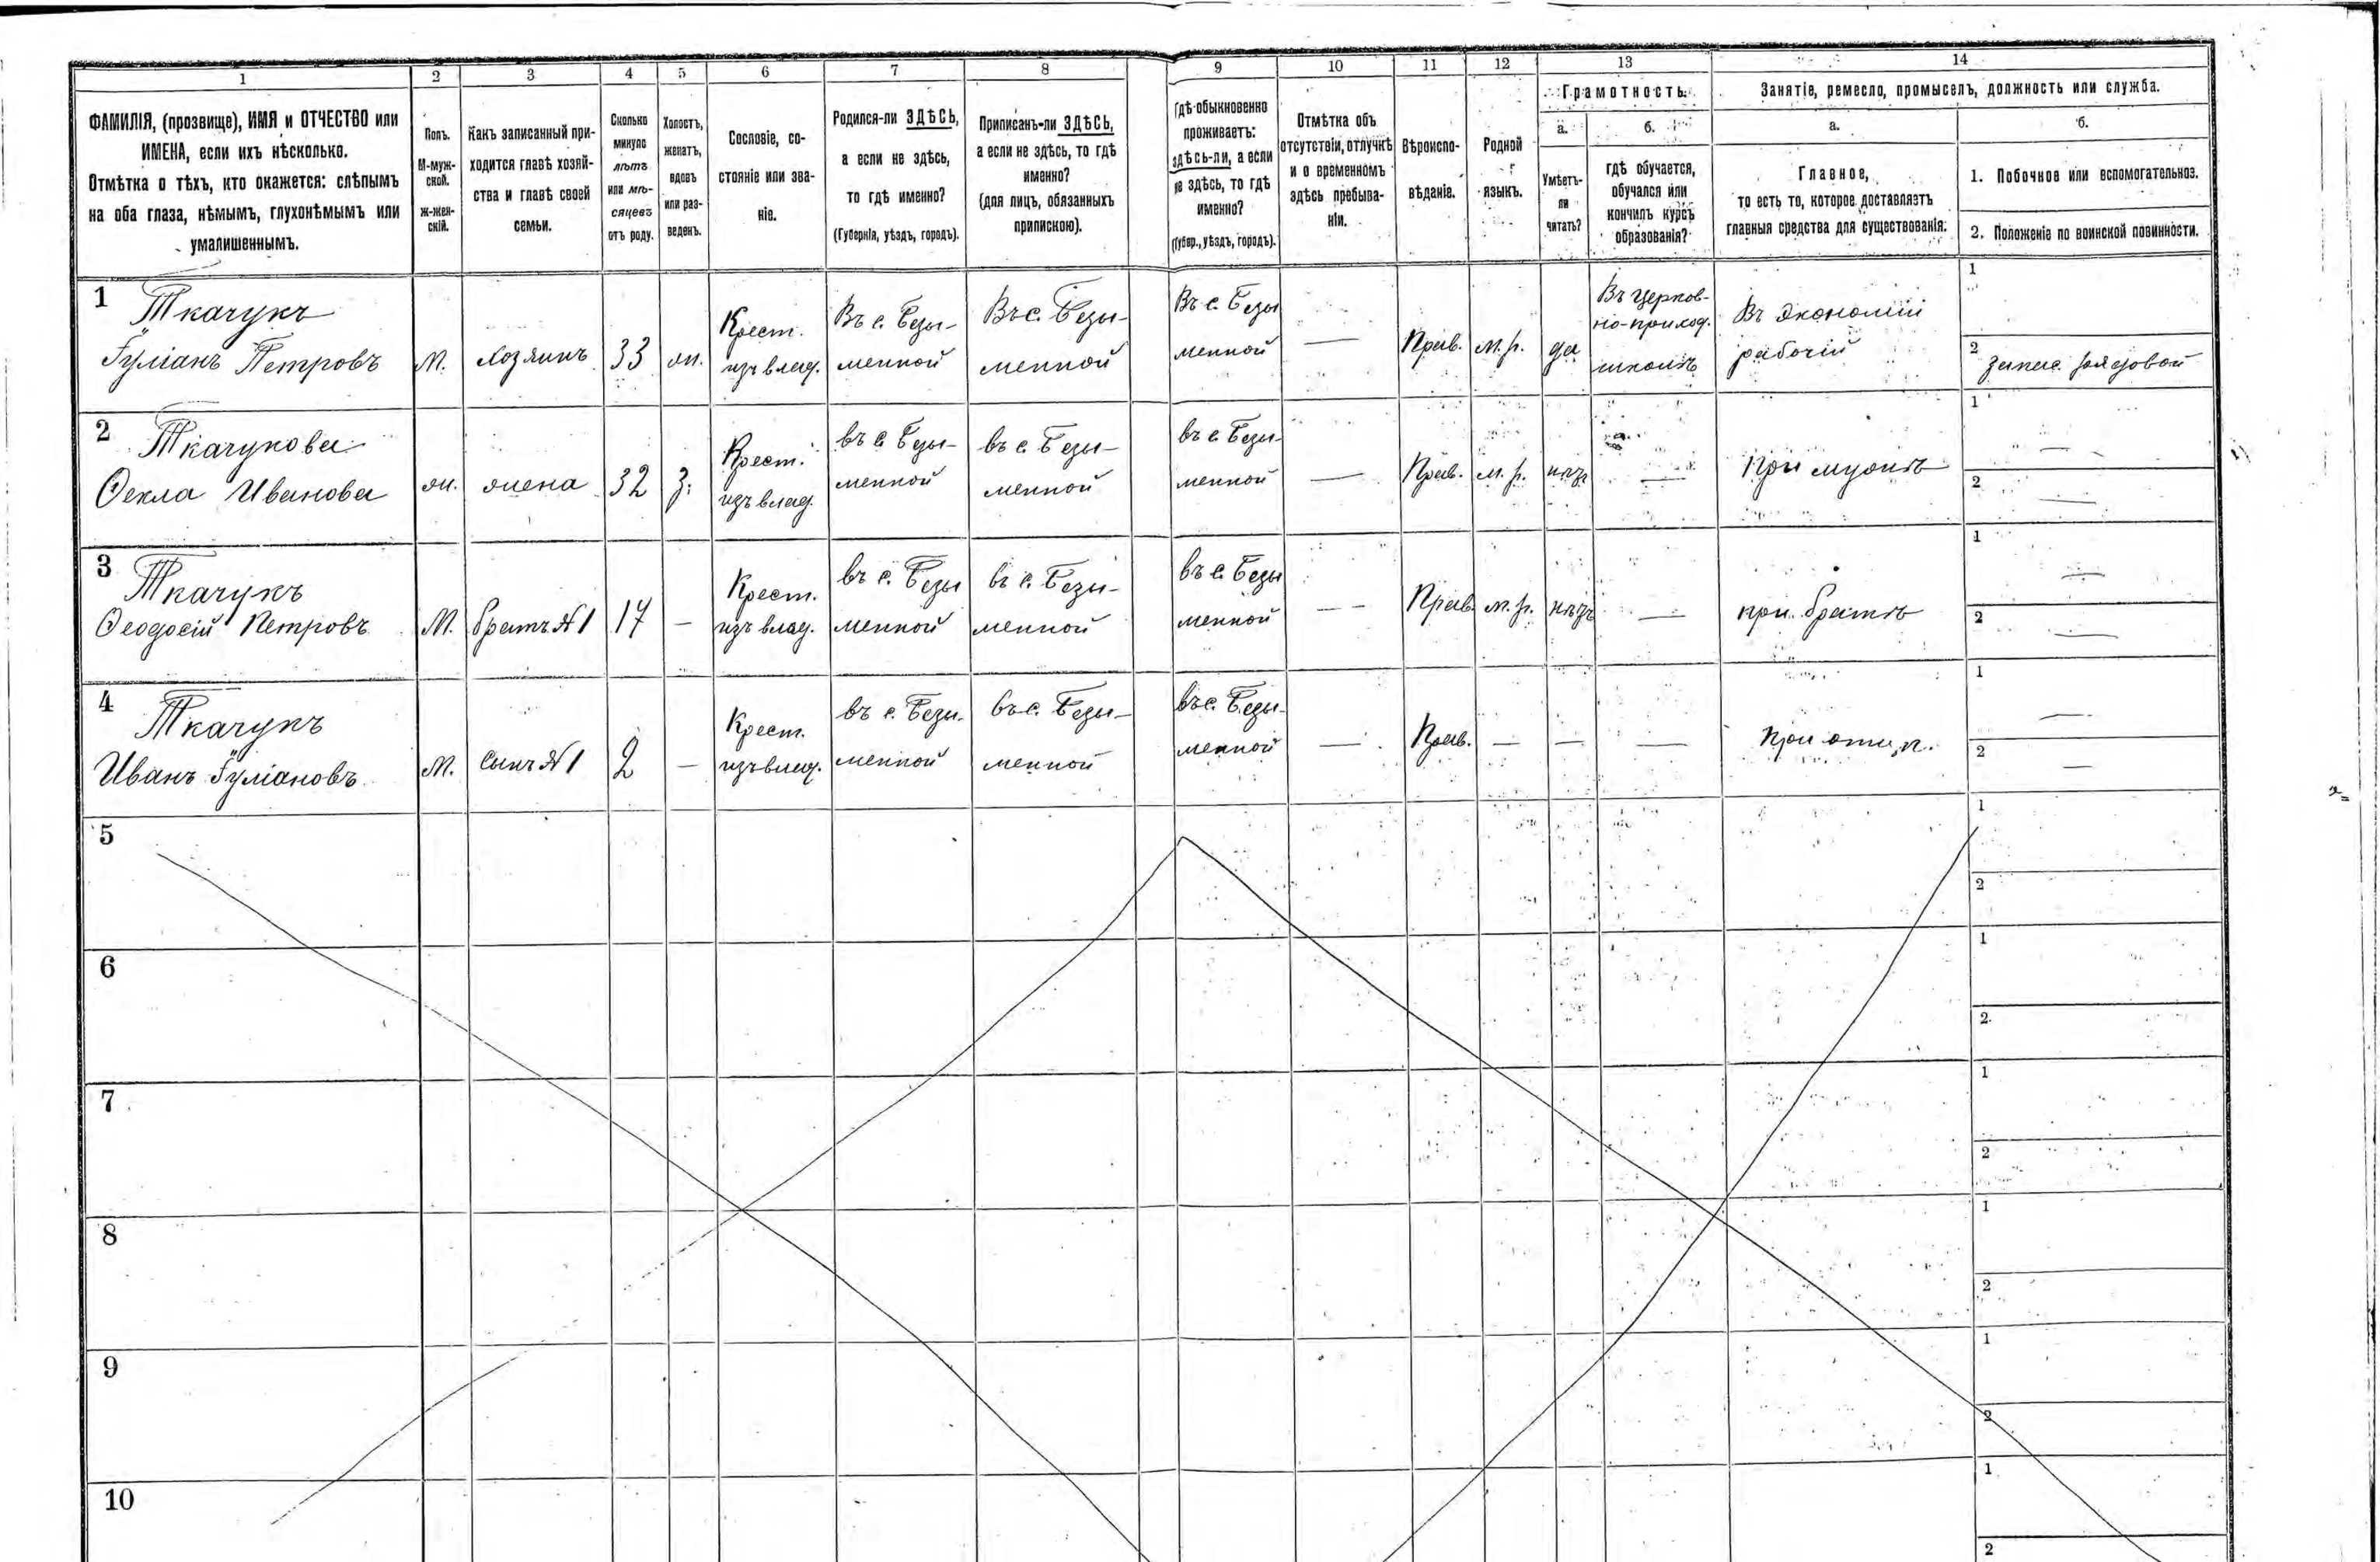 1 2 3 4 5 6 7 8 9 10 11 12 13 14
ФАМИЛІЯ, (прозвище), ИМЯ и ОТЧЕСТВО или
ИМЕНА, если ихъ нѣсколько.
Отмѣтка о тѣхъ, кто окажется: слѣпымъ
на оба глаза, нѣмымъ, глухонѣмымъ или
умалишеннымъ.
Полъ.
М-муж-
ской.
ж-жен-
скій.
Какъ записанный при-
ходится главѣ хозяй-
ства и главѣ своей
семьи.
Сколько
минуло
лѣтъ
или мѣ-
сяцевъ
отъ роду.
Холостъ,
женатъ,
вдовъ
или раз-
веденъ.
Сословіе, со-
стояніе или зва-
ніе.
Родился-ли ЗДѢСЬ,
а если не здѣсь,
то гдѣ именно?
(Губернія, уѣздъ, городъ).
Приписанъ-ли ЗДѢСЬ,
а если не здѣсь, то гдѣ
именно?
(для лицъ, обязанныхъ
припискою).
Гдѣ обыкновенно
проживаетъ:
здѣсь-ли, а если
не здѣсь, то гдѣ
именно?
(Губер., уѣздъ, городъ).
Отмѣтка объ
отсутствіи, отлучкѣ
и о временномъ
здѣсь пребыва-
ніи.
Вѣроиспо-
вѣданіе.
Родной
языкъ.
Грамотность.
а.
Умѣетъ-
ли
читать?
б.
гдѣ обучается,
обучался или
кончилъ курсъ
образованія?
Занятіе, ремесло, промыселъ, должность или служба.
а.
Главное,
то есть то, которое доставляетъ
главныя средства для существованія.
б.
1. Побочное или вспомогательное.
2. Положеніе по воинской повинности.
1
Ткачукъ
Гуліанъ Петровъ
М.
хозяинъ
33
ж.
Крест.
изъ влад.
Въ с. Безы-
менной
Въ с. Безы-
менной
Въ с. Безы
менной
—
Прав.
м. р.
да
Въ церков-
но-приход.
школѣ
Въ экономіи
рабочій
1
2
запас. рядовой
2
Ткачукова
Ѳекла Иванова
ж.
жена
32
з.
Крест.
изъ влад.
въ с. Безы-
менной
въ с. Безы-
менной
въ с. Безы-
менной
—
Прав.
м. р.
нѣтъ
—
При мужѣ
1
—
2
—
3
Ткачукъ
Ѳеодосій Петровъ
М.
братъ №1
17
—
Крест.
изъ влад.
въ с. Безы
менной
въ с. Безы-
менной
въ с. Безы
менной
— —
Прав.
м. р.
нѣтъ
—
при братѣ
1
—
2
—
4
Ткачукъ
Иванъ Гуліановъ
М.
Сынъ №1
2
—
Крест.
изъ влад.
въ с. Безы-
менной
въ с. Безы-
менной
въ с. Безы-
менной
—
Прав.
—
—
—
При отцѣ.
1
—
2
—
5
1
2
6
1
2.
7
1
2
8
1
2
9
1
2
10
1
2